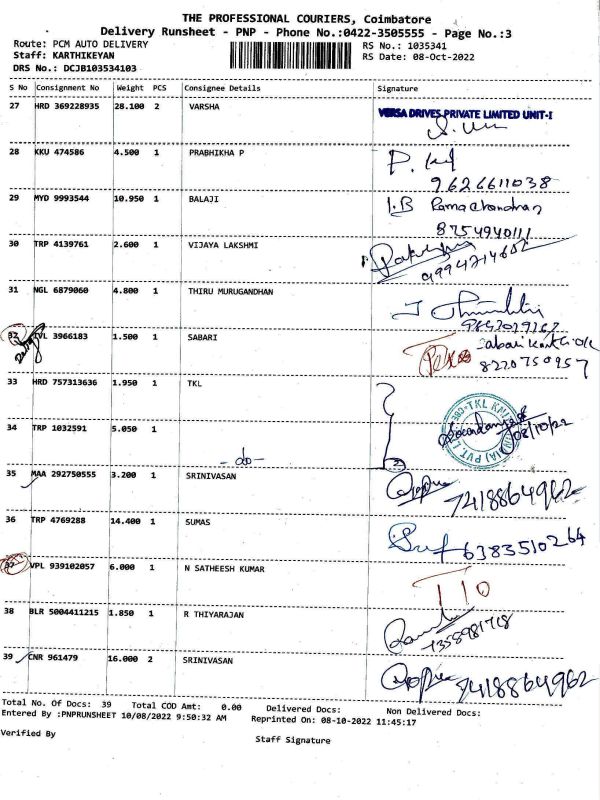 THE PROFESSIONAL COURIERS, Coimbatore
Delivery Runsheet - PNP - Phone No.:0422-3505555 - Page No.:3
Route: PCM AUTO DELIVERY RS No.: 1035341
Staff: KARTHIKEYAN RS Date: 08-Oct-2022
DRS No.: DCJB103534103
S No Consignment No Weight PCS Consignee Details Signature
27 HRD 369228935 28.100 2 VARSHA VERSA DRIVES PRIVATE LIMITED UNIT-I
28 KKU 474586 4.500 1 PRABHIKHA P
9626611038
29 MYD 9993544 10.950 1 BALAJI I.B Ramachandran
8754940111
30 TRP 4139761 2.600 1 VIJAYA LAKSHMI
9994214602
31 NGL 6879060 4.800 1 THIRU MURUGANDHAN
32 TVL 3966183 1.500 1 SABARI
8220750957
33 HRD 757313636 1.950 1 TKL
34 TRP 1032591 5.050 1 08/10/22
-do-
35 MAA 292750555 3.200 1 SRINIVASAN 7418864962
36 TRP 4769288 14.400 1 SUMAS 6383510264
37 VPL 939102057 6.000 1 N SATHEESH KUMAR
38 BLR 5004411215 1.850 1 R THIYARAJAN
39 CNR 961479 16.000 2 SRINIVASAN 7418864962
Total No. Of Docs: 39 Total COD Amt: 0.00 Delivered Docs: Non Delivered Docs:
Entered By :PNPRUNSHEET 10/08/2022 9:50:32 AM Reprinted On: 08-10-2022 11:45:17
Verified By Staff Signature